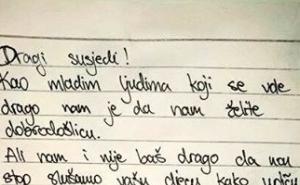 Dragi susjedi!
Kao mladim ljudima koji se vole
drago nam je da nam želite
dobrodošlicu.
Ali nam i nije baš drago da non
stop slušamo vašu djecu kako